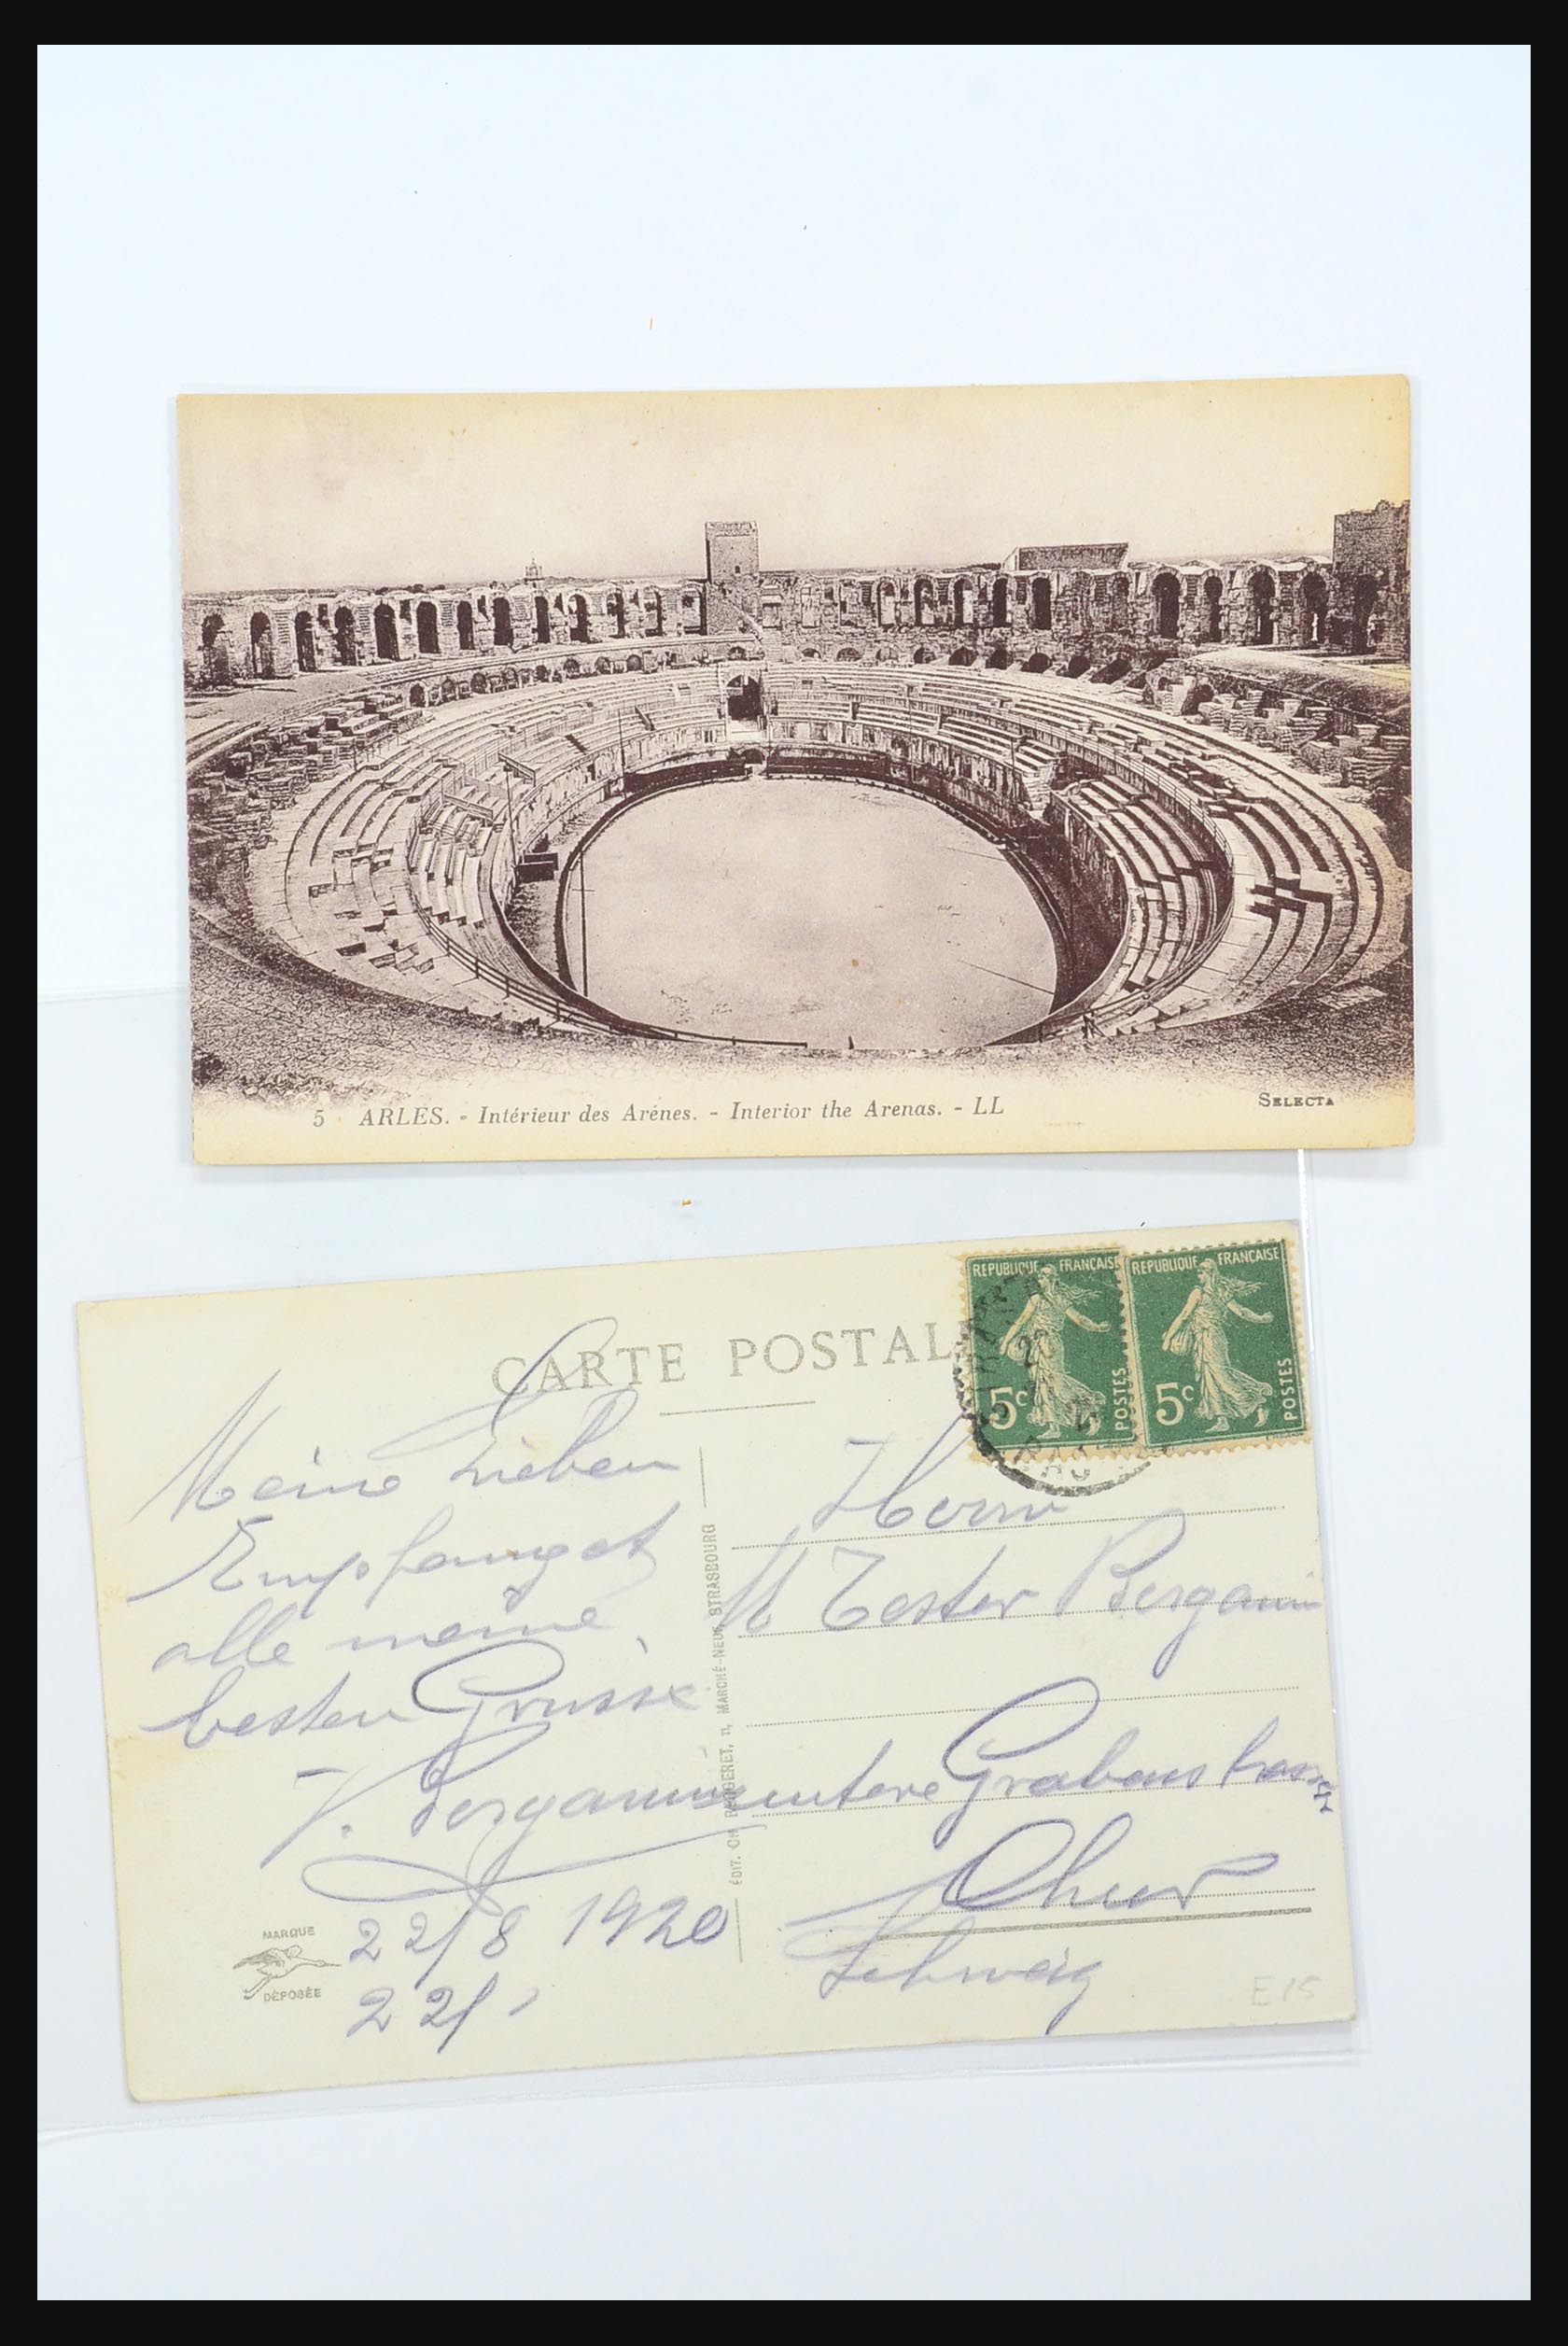 5 ARLES. - Intérieur des Arènes. - Interior the Arenas. - LL
SELECTA
CARTE POSTAL
REPUBLIQUE FRANÇAISE
5c
POSTES
REPUBLIQUE FRANÇAISE
5c
POSTES
Meine Lieben
Empfanget
alle meine
besten Grüsse
J. Bergamin
22/8 1920
22/
MARQUE
DÉPOSÉE
ÉDIT. CH. BERGERET, 11, MARCHÉ-NEUF, STRASBOURG
Herrn
M Tester Bergamin
untere Grabenstrasse
Chur
Schweiz
E15